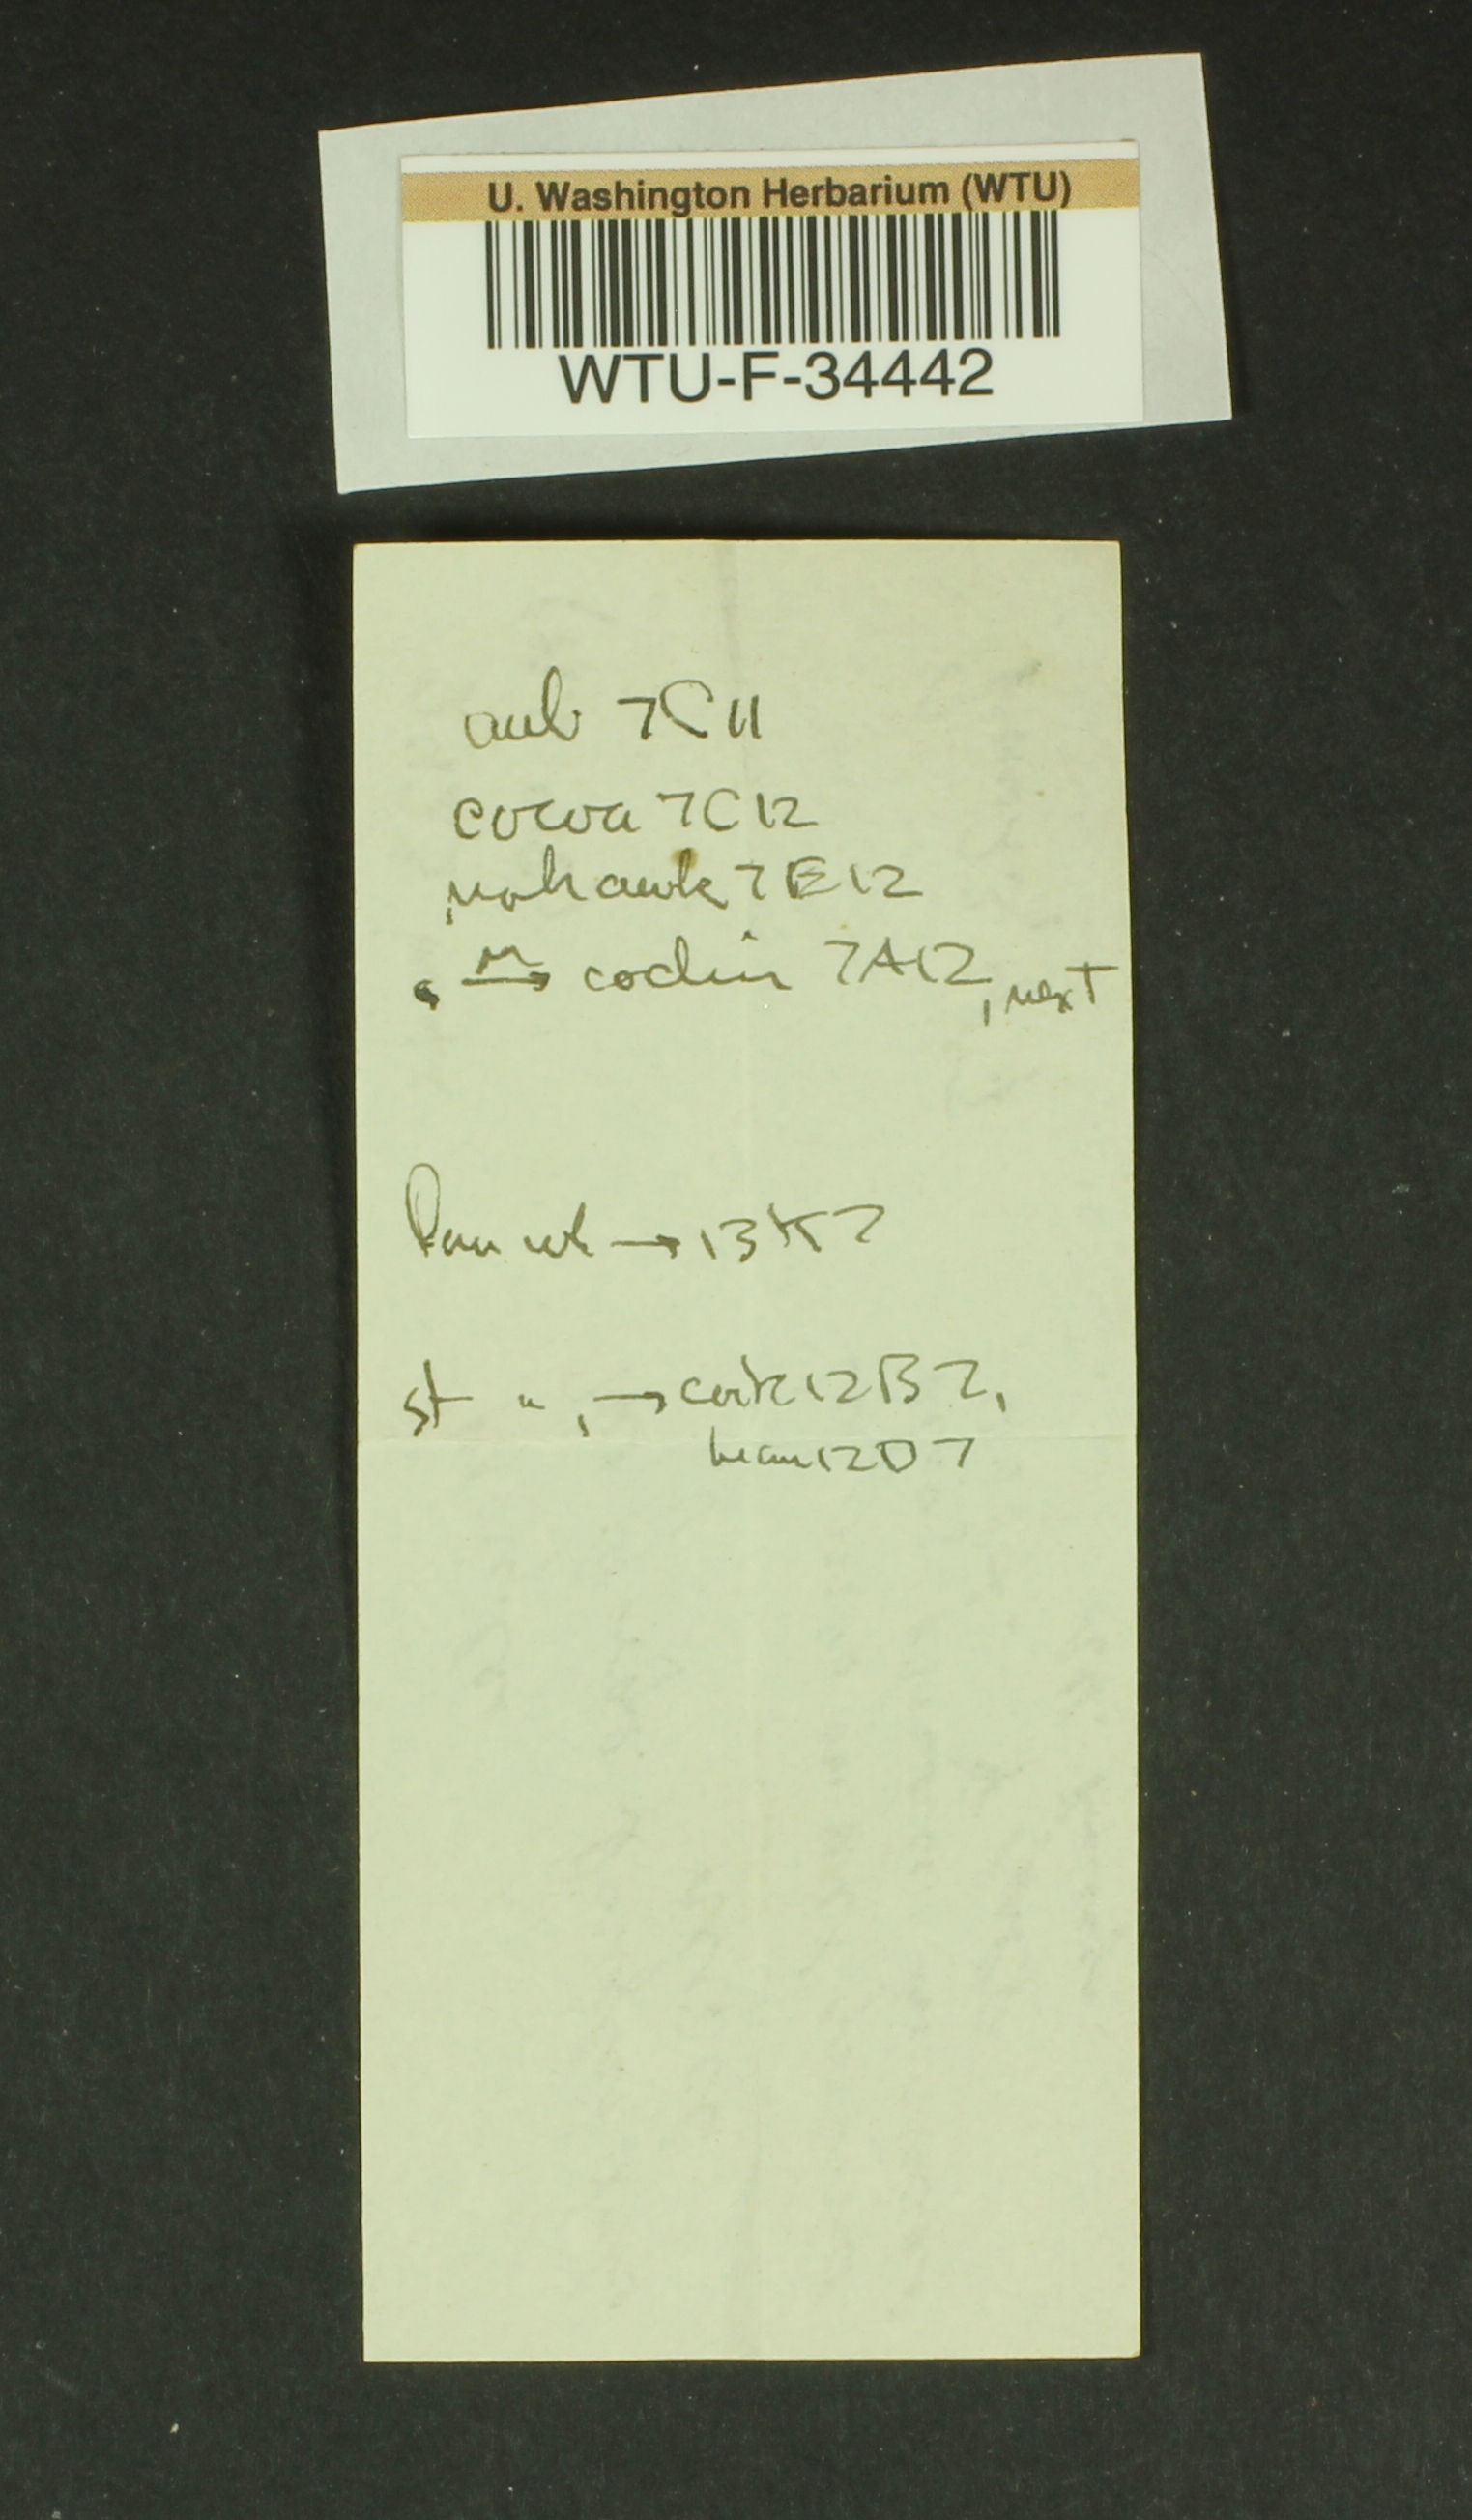 U. Washington Herbarium (WTU)
WTU-F-34442
aub 7C11
cocoa 7C12
mohawk 7E12
→ cochin 7A12, next
→ 13K7
st " , → cork 12B7,
bean 12D7